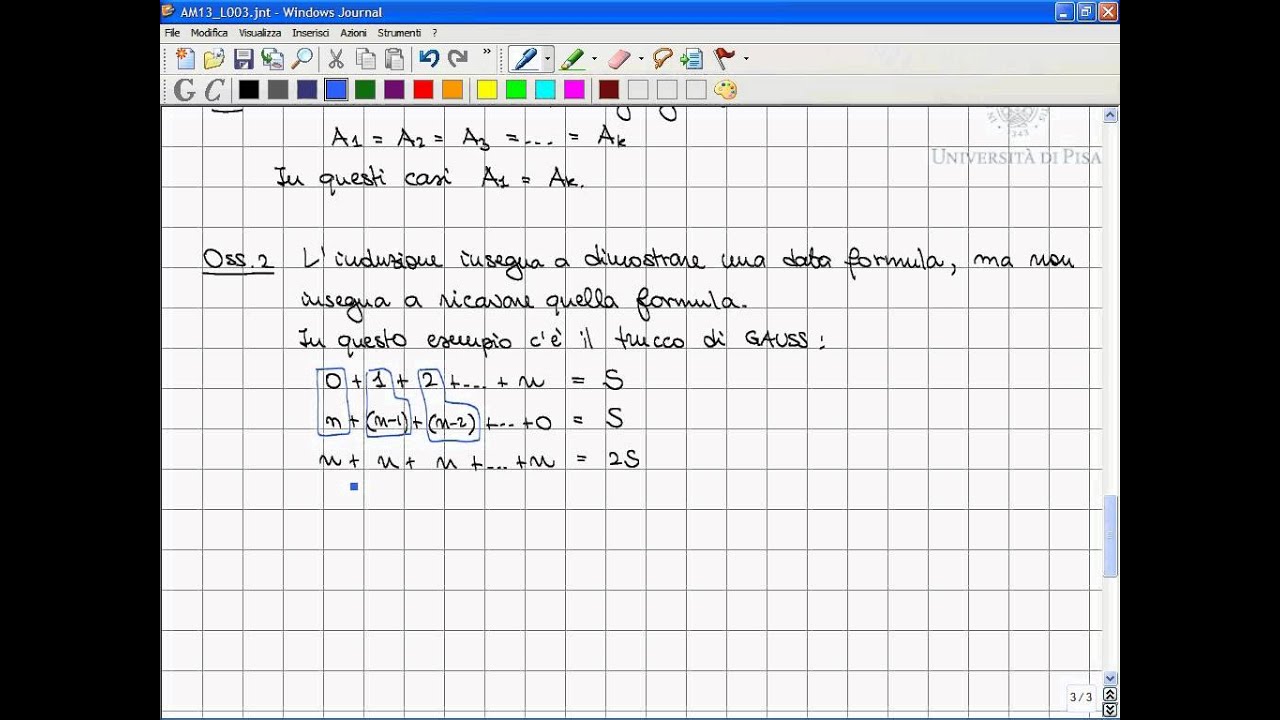 AM13_L003.jnt - Windows Journal
File Modifica Visualizza Inserisci Azioni Strumenti ?
G C
A1 = A2 = A3 = .... = Ak
UNIVERSITÀ DI PISA
In questi casi A1 = Ak.
Oss. 2 L'induzione insegna a dimostrare una data formula, ma non
insegna a ricavare quella formula.
In questo esempio c'è il trucco di GAUSS:
0 + 1 + 2 + .... + n = S
n + (n-1) + (n-2) + ... + 0 = S
n + n + n + ... + n = 2S
3 / 3